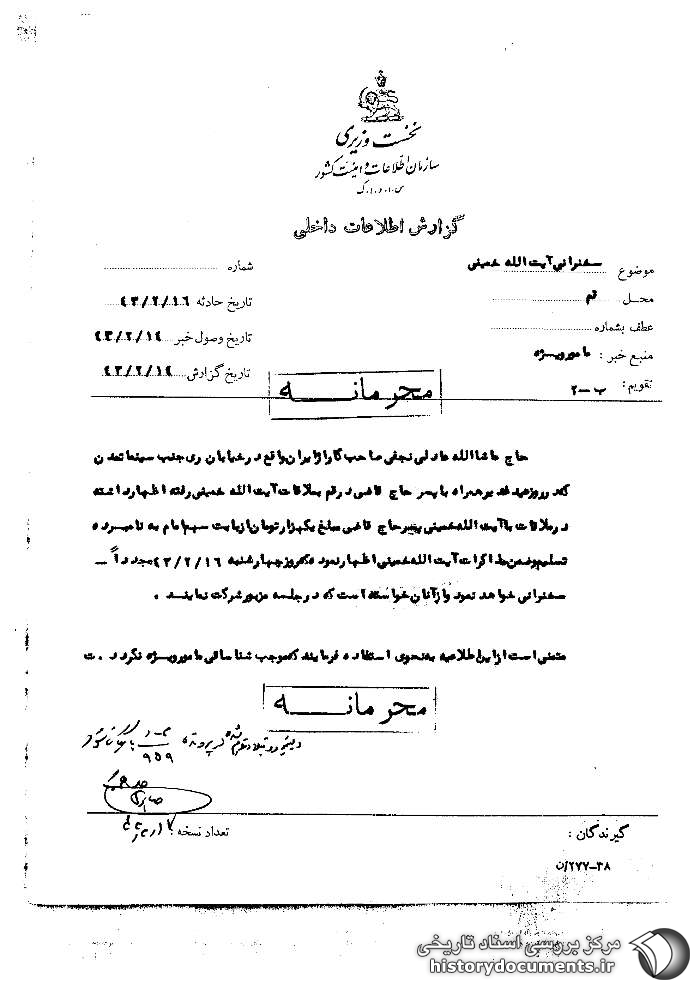 نخست وزیری
سازمان اطلاعات و امنیت کشور
س.ا.و.ا.ک
گزارش اطلاعات داخلی
موضوع سخنرانی آیت الله خمینی
شماره
محل قم
تاریخ حادثه ۴۳/۲/۱۶
عطف بشماره
تاریخ وصول خبر ۴۳/۲/۱۴
منبع خبر : مامور ویژه
تاریخ گزارش ۴۳/۲/۱۴
تقویم : ب-۲
محرمانه
حاج ماشاالله عادلی نجفی صاحب گاراژ ایران واقع در خیابان ری جنب سینما تمدن
که در روز عید غدیر همراه با پسر حاج قاضی در قم بملاقات آیت الله خمینی رفته اظهار داشته
در ملاقات با آیت الله خمینی پسر حاج قاضی مبلغ یکهزار تومان از بابت سهم امام به نامبرده
تسلیم و ضمن مذاکرات آیت الله خمینی اظهار نموده که روز چهارشنبه ۴۳/۲/۱۶ مجدداً -
سخنرانی خواهد نمود و از آنان خواسته است که در جلسه مزبور شرکت نمایند .
متمنی است از این اطلاعیه به نحوی استفاده فرمایند که موجب شناسائی مامور ویژه نگردد . ت
محرمانه
۹۵۹
گیرندگان :
تعداد نسخه :
۲۷۷-۳۸/ن
مرکز بررسی اسناد تاریخی
historydocuments.ir